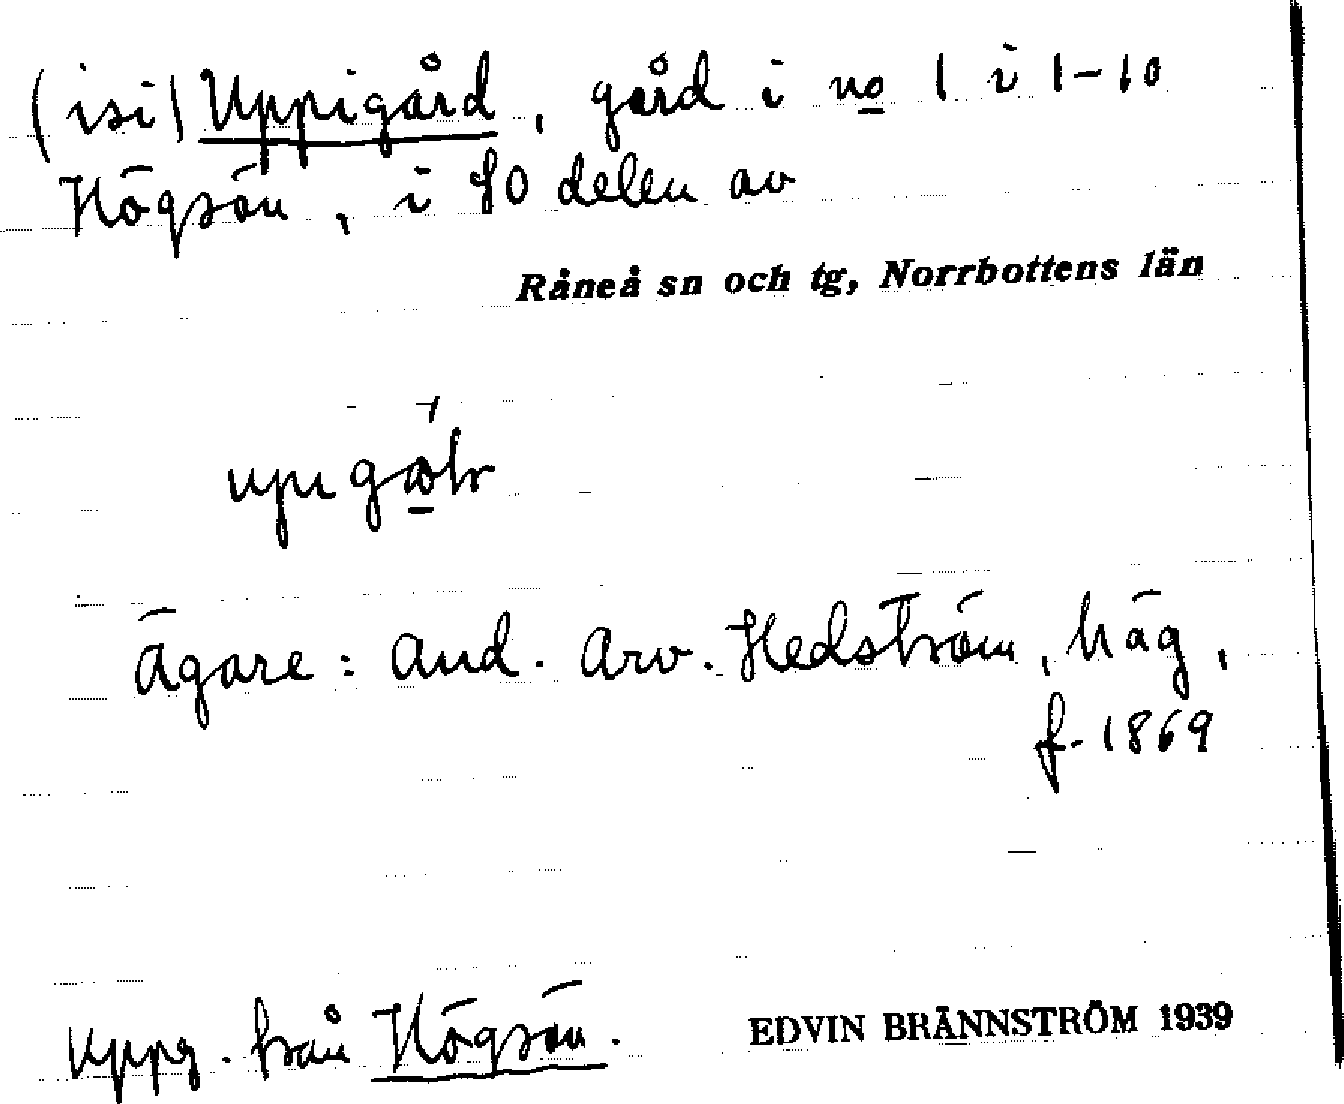 (isi) Uppigård, gård i no 1 i 1-10
Högsön, i SO delen av
Råneå sn och tg, Norrbottens län
Ägare: And. Arv. Hedström, häg,
f. 1869
Uppg. från Högsön.
EDVIN BRÄNNSTRÖM 1939